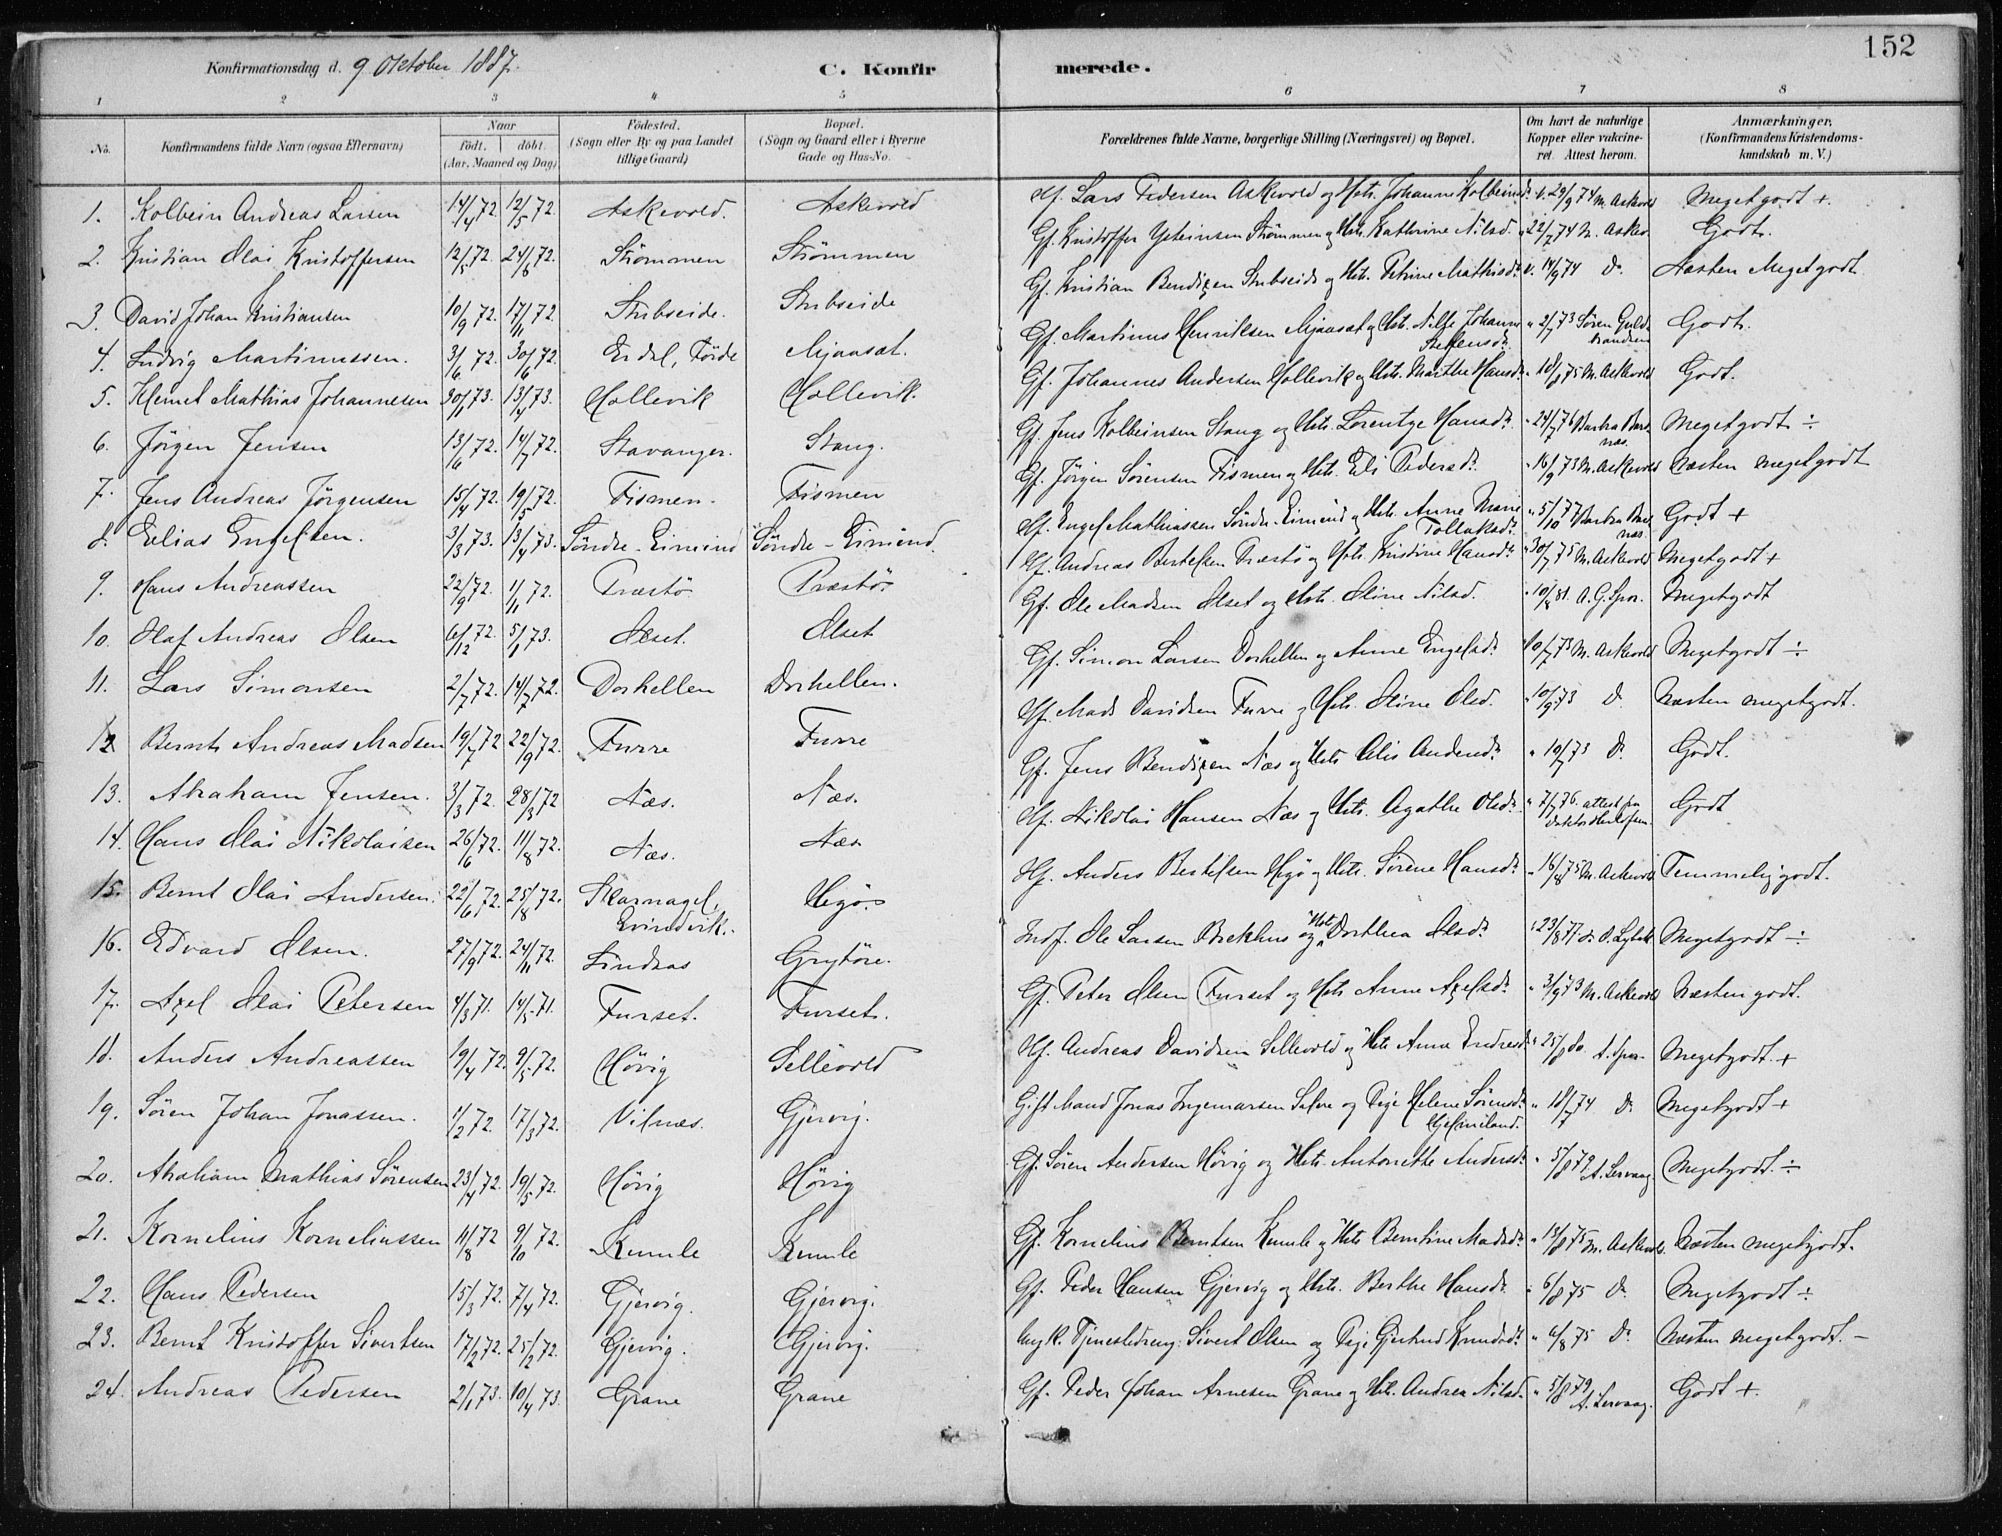 152
Konfirmationsdag d. 9 Oktober 1887.
C. Konfir merede.
1 2 3 4 5 6 7 8
No. Konfirmandens fulde Navn (ogsaa Efternavn) Naar født. døbt. (Aar, Maaned og Dag) Fødested. (Sogn eller By og paa Landet tillige Gaard) Bopæl. (Sogn og Gaard eller i Byerne Gade og Hus-No. Forældrenes fulde Navne, borgerlige Stilling (Næringsvei) og Bopæl. Om havt de naturlige Kopper eller vakcineret. Attest herom. Anmærkninger, (Konfirmandens Kristendomskundskab m. V.)
1. Kolbein Andreas Larsen 14/4 72. 12/5 72. Askevold. Askevold Gf. Lars Pedersen Askevold og Hst. Johanne Kolbeinsdr. v. 29/9 74 M. Askevold Megetgodt +.
2. Kristian Olai Kristoffersen 12/5 72. 24/8 72. Strømmen Strømmen Gf. Kristoffer Ysteinsen Strømmen og Hst. Kathrine Nilsd. " 22/7 74 M. Askev. Godt.
3. David Johan Kristiansen 10/9 72. 17/11 72. Stubseide. Stubseide Gf. Kristian Bendixen Stubseide og Hst. Petrine Mathisdr. v. 14/9 74 Do. Næsten Megetgodt
4. Ludvig Martinussen. 3/6 72. 30/6 72. Erdal, Førde Mjaasæt. Gf. Martinus Henriksen Mjaasæt og Hst. Nille Johanne Steffensdr. " 2/7 73 Søren Guldbrandsen Godt.
5. Klemet Mathias Johannesen 30/1 73. 13/4 73. Hollevik Hollevik. Gf. Johannes Andersen Hollevik og Hst. Marthe Hansdr. " 18/8 75 M. Askevold Godt.
6. Jörgen Jensen 13/6 72. 14/7 72. Stavanger. Stang. Gf. Jens Kolbeinsen Stang og Hst. Lorentze Hansdr. " 24/7 76 Barbra Bars næs. Megetgodt ÷
7. Jens Andreas Jörgensen 15/4 72. 19/5 72. Tismen. Tismen Gf. Jörgen Sörensen Tismen og Hst. Eli Pedersdr. " 16/9 73 M. Askevold Næsten megetgodt
8. Elias Engelsen. 3/3 73. 13/4 73. Söndre-Eimind Söndre-Eimind. Gf. Engel Mathiassen Söndre-Eimind og Hst. Anne Marie Tollaksdr. " 5/10 77 Barbra Bars næs Godt +
9. Hans Andreassen 22/9 72. 1/11 72. Præstö Præstö. Gf. Andreas Bertelsen Præstö og Hst. Kristine Hansdr. " 30/7 75 M. Askevold Megetgodt +
10. Olaf Andreas Olsen 6/12 72. 5/1 73. Olset. Olset Gf. Ole Madsen Olset og Hst. Oline Nilsd. " 10/8 81. A. G. Spor. Megetgodt
11. Lars Simonsen 2/7 72. 14/7 72. Dorhellen Dorhellen. Gf. Simon Larsen Dorhellen og Anne Engelsdr. " 10/7 73 M. Askevold Megetgodt ÷
12 Bernt Andreas Madsen 19/7 72 22/9 72. Furre Furre Gf. Mads Davidsen Furre og Hst. Oline Olsd. " 10/9 73 Do. Næsten megetgodt.
13. Abraham Jensen. 3/3 72. 28/3 72 Næs. Næs. Gf. Jens Bendixen Næs og Hst. Alis Andersdr. " 10/7 73 Do. Godt.
14. Hans Olai Nikolaisen 26/6 72. 11/8 72. Næs. Næs Gf. Nikolai Hansen Næs og Hst. Agathe Olsdr. " 7/7 76. attest fra Godt
15. Bernt Olai Andersen. 22/6 72. 25/8 72. Skarnagel, Evindvik. Hegö. Gf. Anders Bertelsen Hegö og Hst. Sörene Hansdr. " 16/8 75 M. Askevold Temmelig godt.
16. Edvard Olsen. 27/9 72. 24/11 72. Lindaas Grytöre. Indf. Ole Larsen Brekhus og Hst. Dorthea Olsdr. " 23/8 77. Megetgodt ÷
17. Axel Olai Petersen 4/3 71. 14/5 71. Furset. Furset. Gf. Peter Olsen Furset og Hst. Anne Axelsdr. " 3/9 73 M. Askevold Næsten godt.
18. Anders Andreassen 19/4 72. 9/5 72. Hövig Sellevold Gf. Andreas Davidsen Sellevold og Hst. Anna Endresdr. " 25/8 80 A. Spor. Megetgodt +
19. Sören Johan Jonassen. 1/2 72. 17/3 72. Vilnæs. Gjervig. Gift Mand Jonas Ingemarsen Salve og Pige Helene Sörensdr. " 18/7 74 Do. Megetgodt +
20. Abraham Mathias Sörensen 23/4 72. 19/5 72. Hövig Hövig Gf. Sören Andersen Hövig og Hst. Antonette Andersdr. " 5/8 79 A. Lervaag. Megetgodt ÷
21. Kornelius Korneliussen 11/8 72 9/10 72. Kumle Kumle Gf. Kornelius Berntsen Kumle og Hst. Berntine Madsdr. " 13/8 75 M. Askevold. Næsten megetgodt.
22. Hans Pedersen 15/3 72. 7/4 72. Gjervig. Gjervig. Gf. Peder Hansen Gjervig og Hst. Berthe Hansdr. " 6/8 75 Do. Megetgodt ÷
23. Bernt Kristoffer Sivertsen 17/2 72. 25/2 72. Gjervig. Gjervig. Ungk. Tjenestedreng Sivert Olsen og Pige Gjertrud Knudsdr. " 6/8 75 Do. Næsten megetgodt. -
24. Andreas Pedersen 2/1 73. 10/4 73. Grane Grane Gf. Peder Johan Arnesen Grane og Hst. Andrea Nilsd. " 5/8 79 A. Lervaag. Godt +.